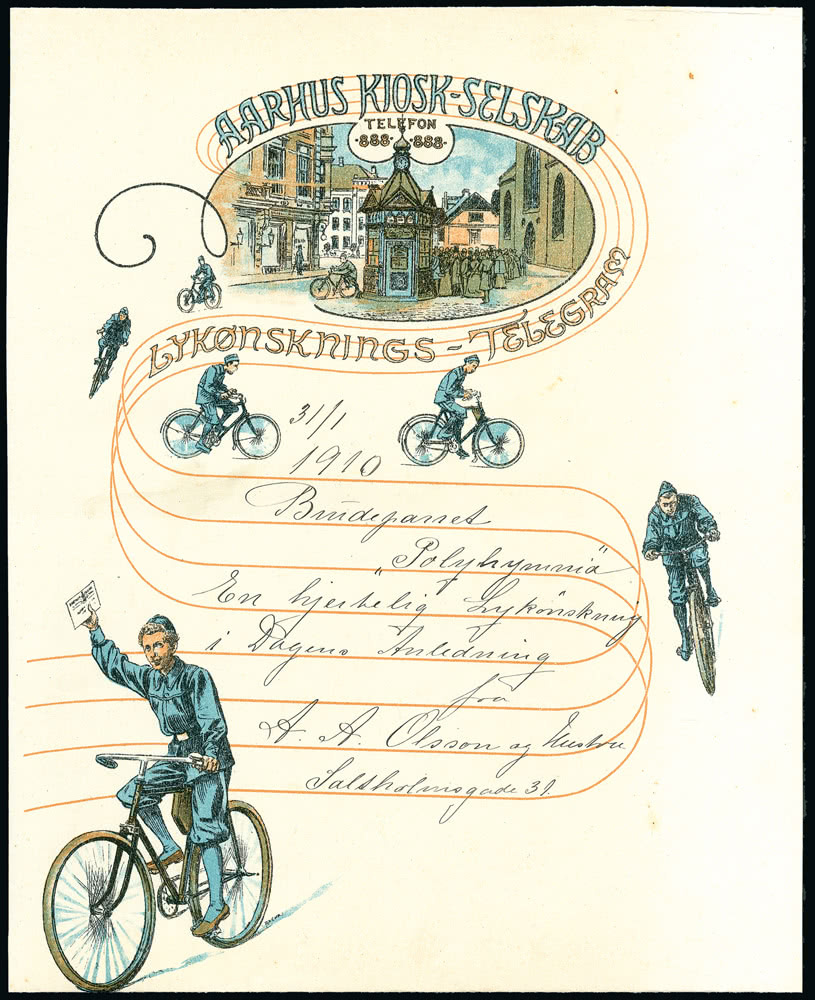 AARHUS KIOSK-SELSKAB
TELEFON
·888· ·888·
LYKØNSKNINGS-TELEGRAM
31/1
1910
Brudeparret
"Polyhymnia"
En hjertelig Lykönskning
i Dagens Anledning
fra
A. A. Olsson og Hustru
Saltholmsgade 31.